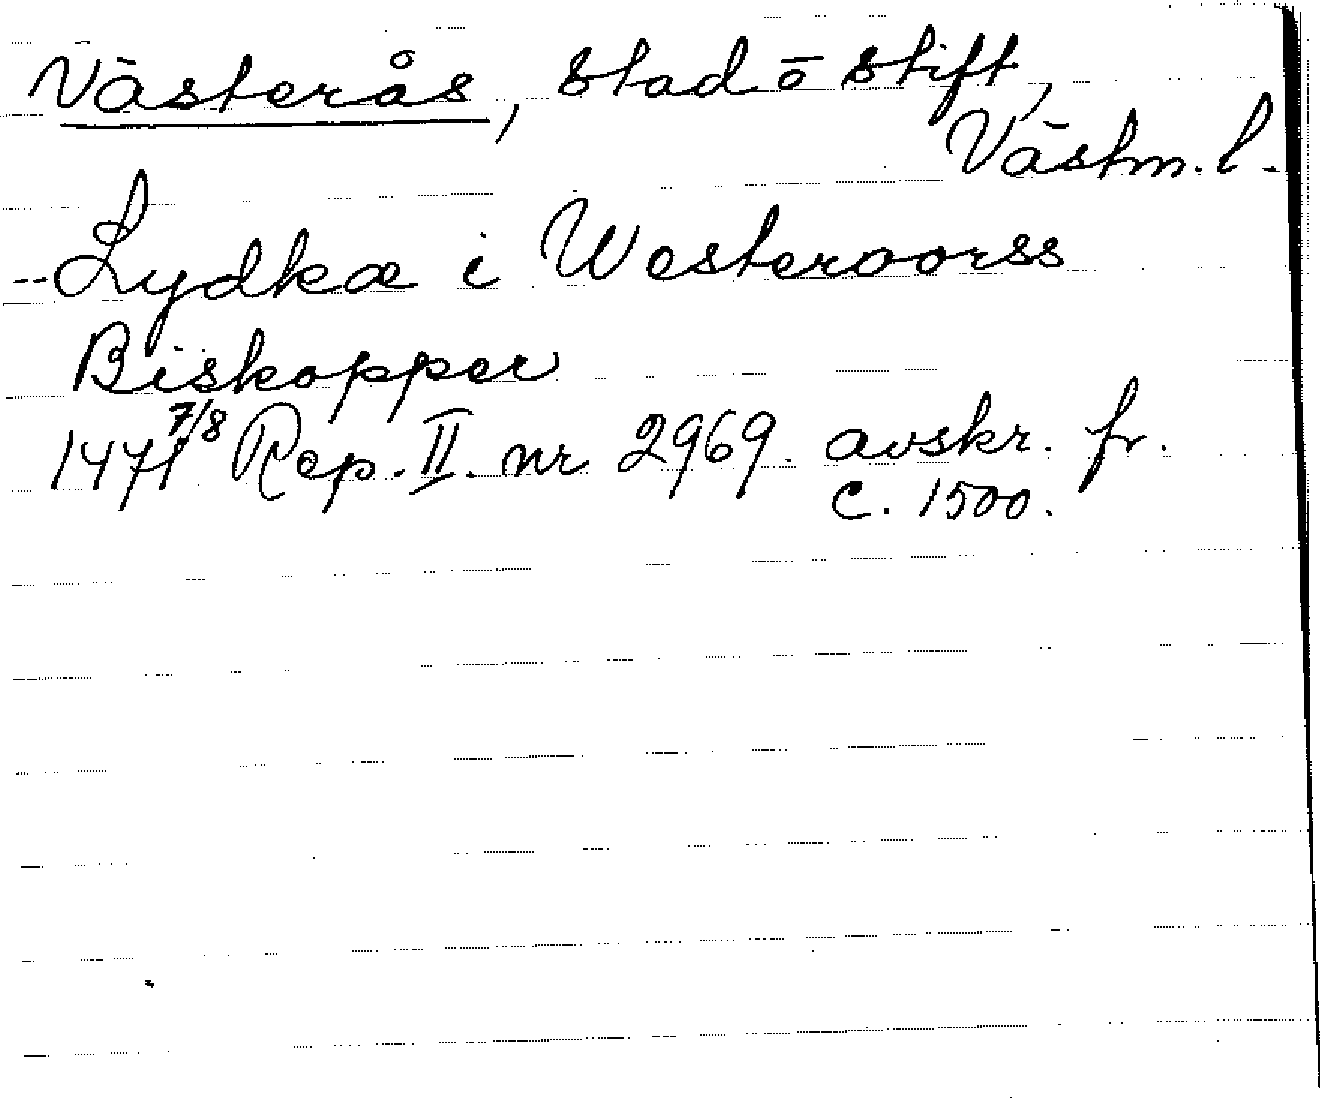 Västerås, stad o stift,
Västm. l.
--Lydkæ i Westeroorss
Biskopper
1471 7/8 Rep. II. nr 2969. avskr. fr.
c. 1500.